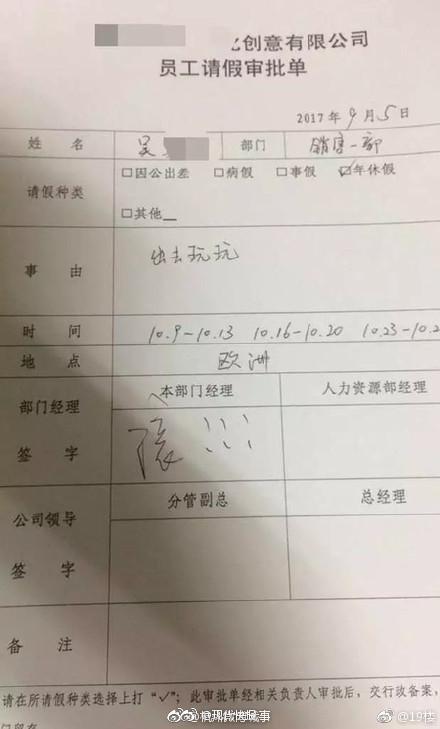 创意有限公司
员工请假审批单
2017年9月5日
姓名 吴 部门 销售一部
请假种类 □因公出差 □病假 □事假 ☑年休假
□其他__
事由 出去玩玩
时间 10.9-10.13 10.16-10.20 10.23-10.2
地点 欧洲
部门经理签字 本部门经理 人力资源部经理
!!!
公司领导签字 分管副总 总经理
备注
请在所请假种类选择上打“✓”;此审批单经相关负责人审批后,交行政备案,
@19楼